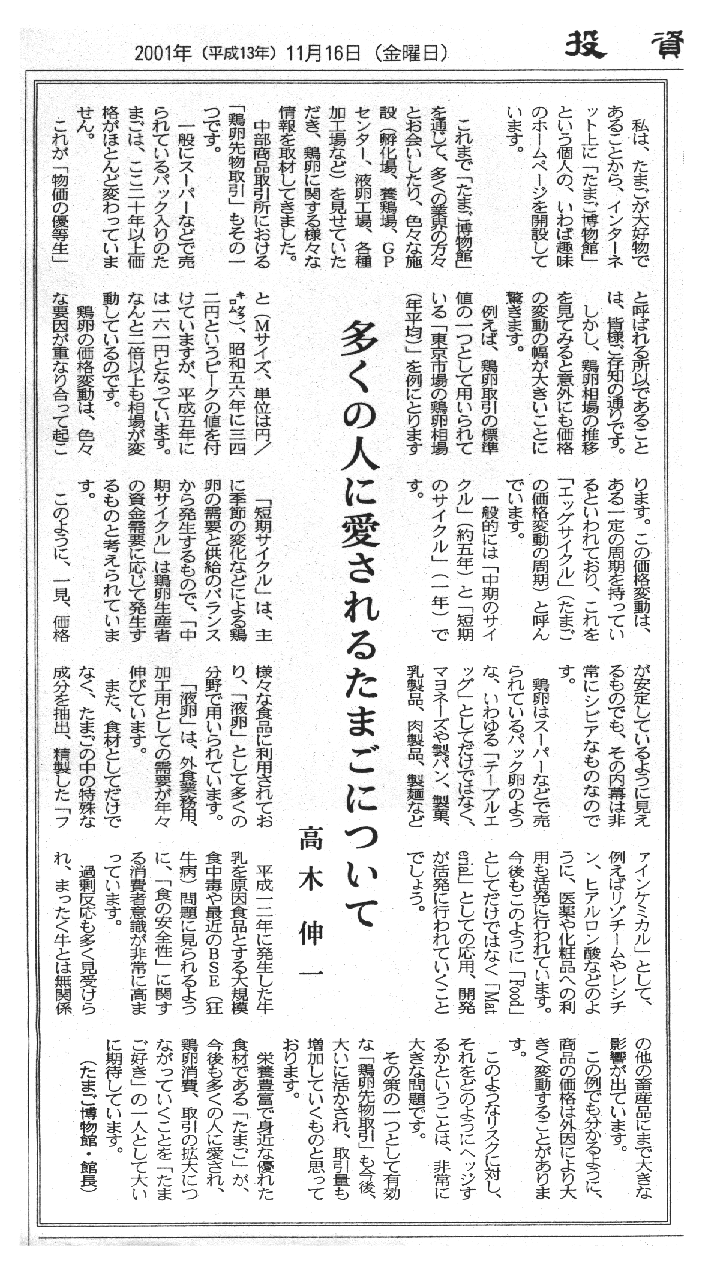 2001年（平成13年）11月16日（金曜日）
投資
多くの人に愛されるたまごについて
高木伸一
私は、たまごが大好物で
あることから、インターネ
ット上に「たまご博物館」
という個人の、いわば趣味
のホームページを開設して
います。
これまで「たまご博物館」
を通じて、多くの業界の方々
とお会いしたり、色々な施
設（孵化場、養鶏場、ＧＰ
センター、液卵工場、各種
加工場など）を見せていた
だき、鶏卵に関する様々な
情報を取材してきました。
中部商品取引所における
「鶏卵先物取引」もその一
つです。
一般にスーパーなどで売
られているパック入りのた
まごは、ここ二十年以上価
格がほとんど変わっていま
せん。
これが「物価の優等生」
と呼ばれる所以であること
は、皆様ご存知の通りです。
しかし、鶏卵相場の推移
を見てみると意外にも価格
の変動の幅が大きいことに
驚きます。
例えば、鶏卵取引の標準
値の一つとして用いられて
いる「東京市場の鶏卵相場
（年平均）」を例にとります
と（Ｍサイズ、単位は円／
キログラム）、昭和五六年に三四
二円というピークの値を付
けていますが、平成五年に
は一六一円となっています。
なんと二倍以上も相場が変
動しているのです。
鶏卵の価格変動は、色々
な要因が重なり合って起こ
ります。この価格変動は、
ある一定の周期を持ってい
るといわれており、これを
「エッグサイクル」（たまご
の価格変動の周期）と呼ん
でいます。
一般的には「中期のサイ
クル」（約五年）と「短期
のサイクル」（一年）で
す。
「短期サイクル」は、主
に季節の変化などによる鶏
卵の需要と供給のバランス
から発生するもので、「中
期サイクル」は鶏卵生産者
の資金需要に応じて発生す
るものと考えられていま
す。
このように、一見、価格
が安定しているように見え
るものでも、その内幕は非
常にシビアなものなので
す。
鶏卵はスーパーなどで売
られているパック卵のよう
な、いわゆる「テーブルエ
ッグ」としてだけではなく、
マヨネーズや製パン、製菓、
乳製品、肉製品、製麺など
様々な食品に利用されてお
り、「液卵」として多くの
分野で用いられています。
「液卵」は、外食業務用、
加工用としての需要が年々
伸びています。
また、食材としてだけで
なく、たまごの中の特殊な
成分を抽出、精製した「フ
ァインケミカル」として、
例えばリゾチームやレシチ
ン、ヒアルロン酸などのよ
うに、医薬や化粧品への利
用も活発に行われています。
今後もこのように「Food」
としてだけではなく「Mat
erial」としての応用、開発
が活発に行われていくこと
でしょう。
平成一二年に発生した牛
乳を原因食品とする大規模
食中毒や最近のＢＳＥ（狂
牛病）問題に見られるよう
に、「食の安全性」に関す
る消費者意識が非常に高ま
っています。
過剰反応も多く見受けら
れ、まったく牛とは無関係
の他の畜産品にまで大きな
影響が出ています。
この例でも分かるように、
商品の価格は外因により大
きく変動することがありま
す。
このようなリスクに対し、
それをどのようにヘッジす
るかということは、非常に
大きな問題です。
その策の一つとして有効
な「鶏卵先物取引」も今後、
大いに活かされ、取引量も
増加していくものと思って
おります。
栄養豊富で身近な優れた
食材である「たまご」が、
今後も多くの人に愛され、
鶏卵消費、取引の拡大につ
ながっていくことを「たま
ご好き」の一人として大い
に期待しています。
（たまご博物館・館長）